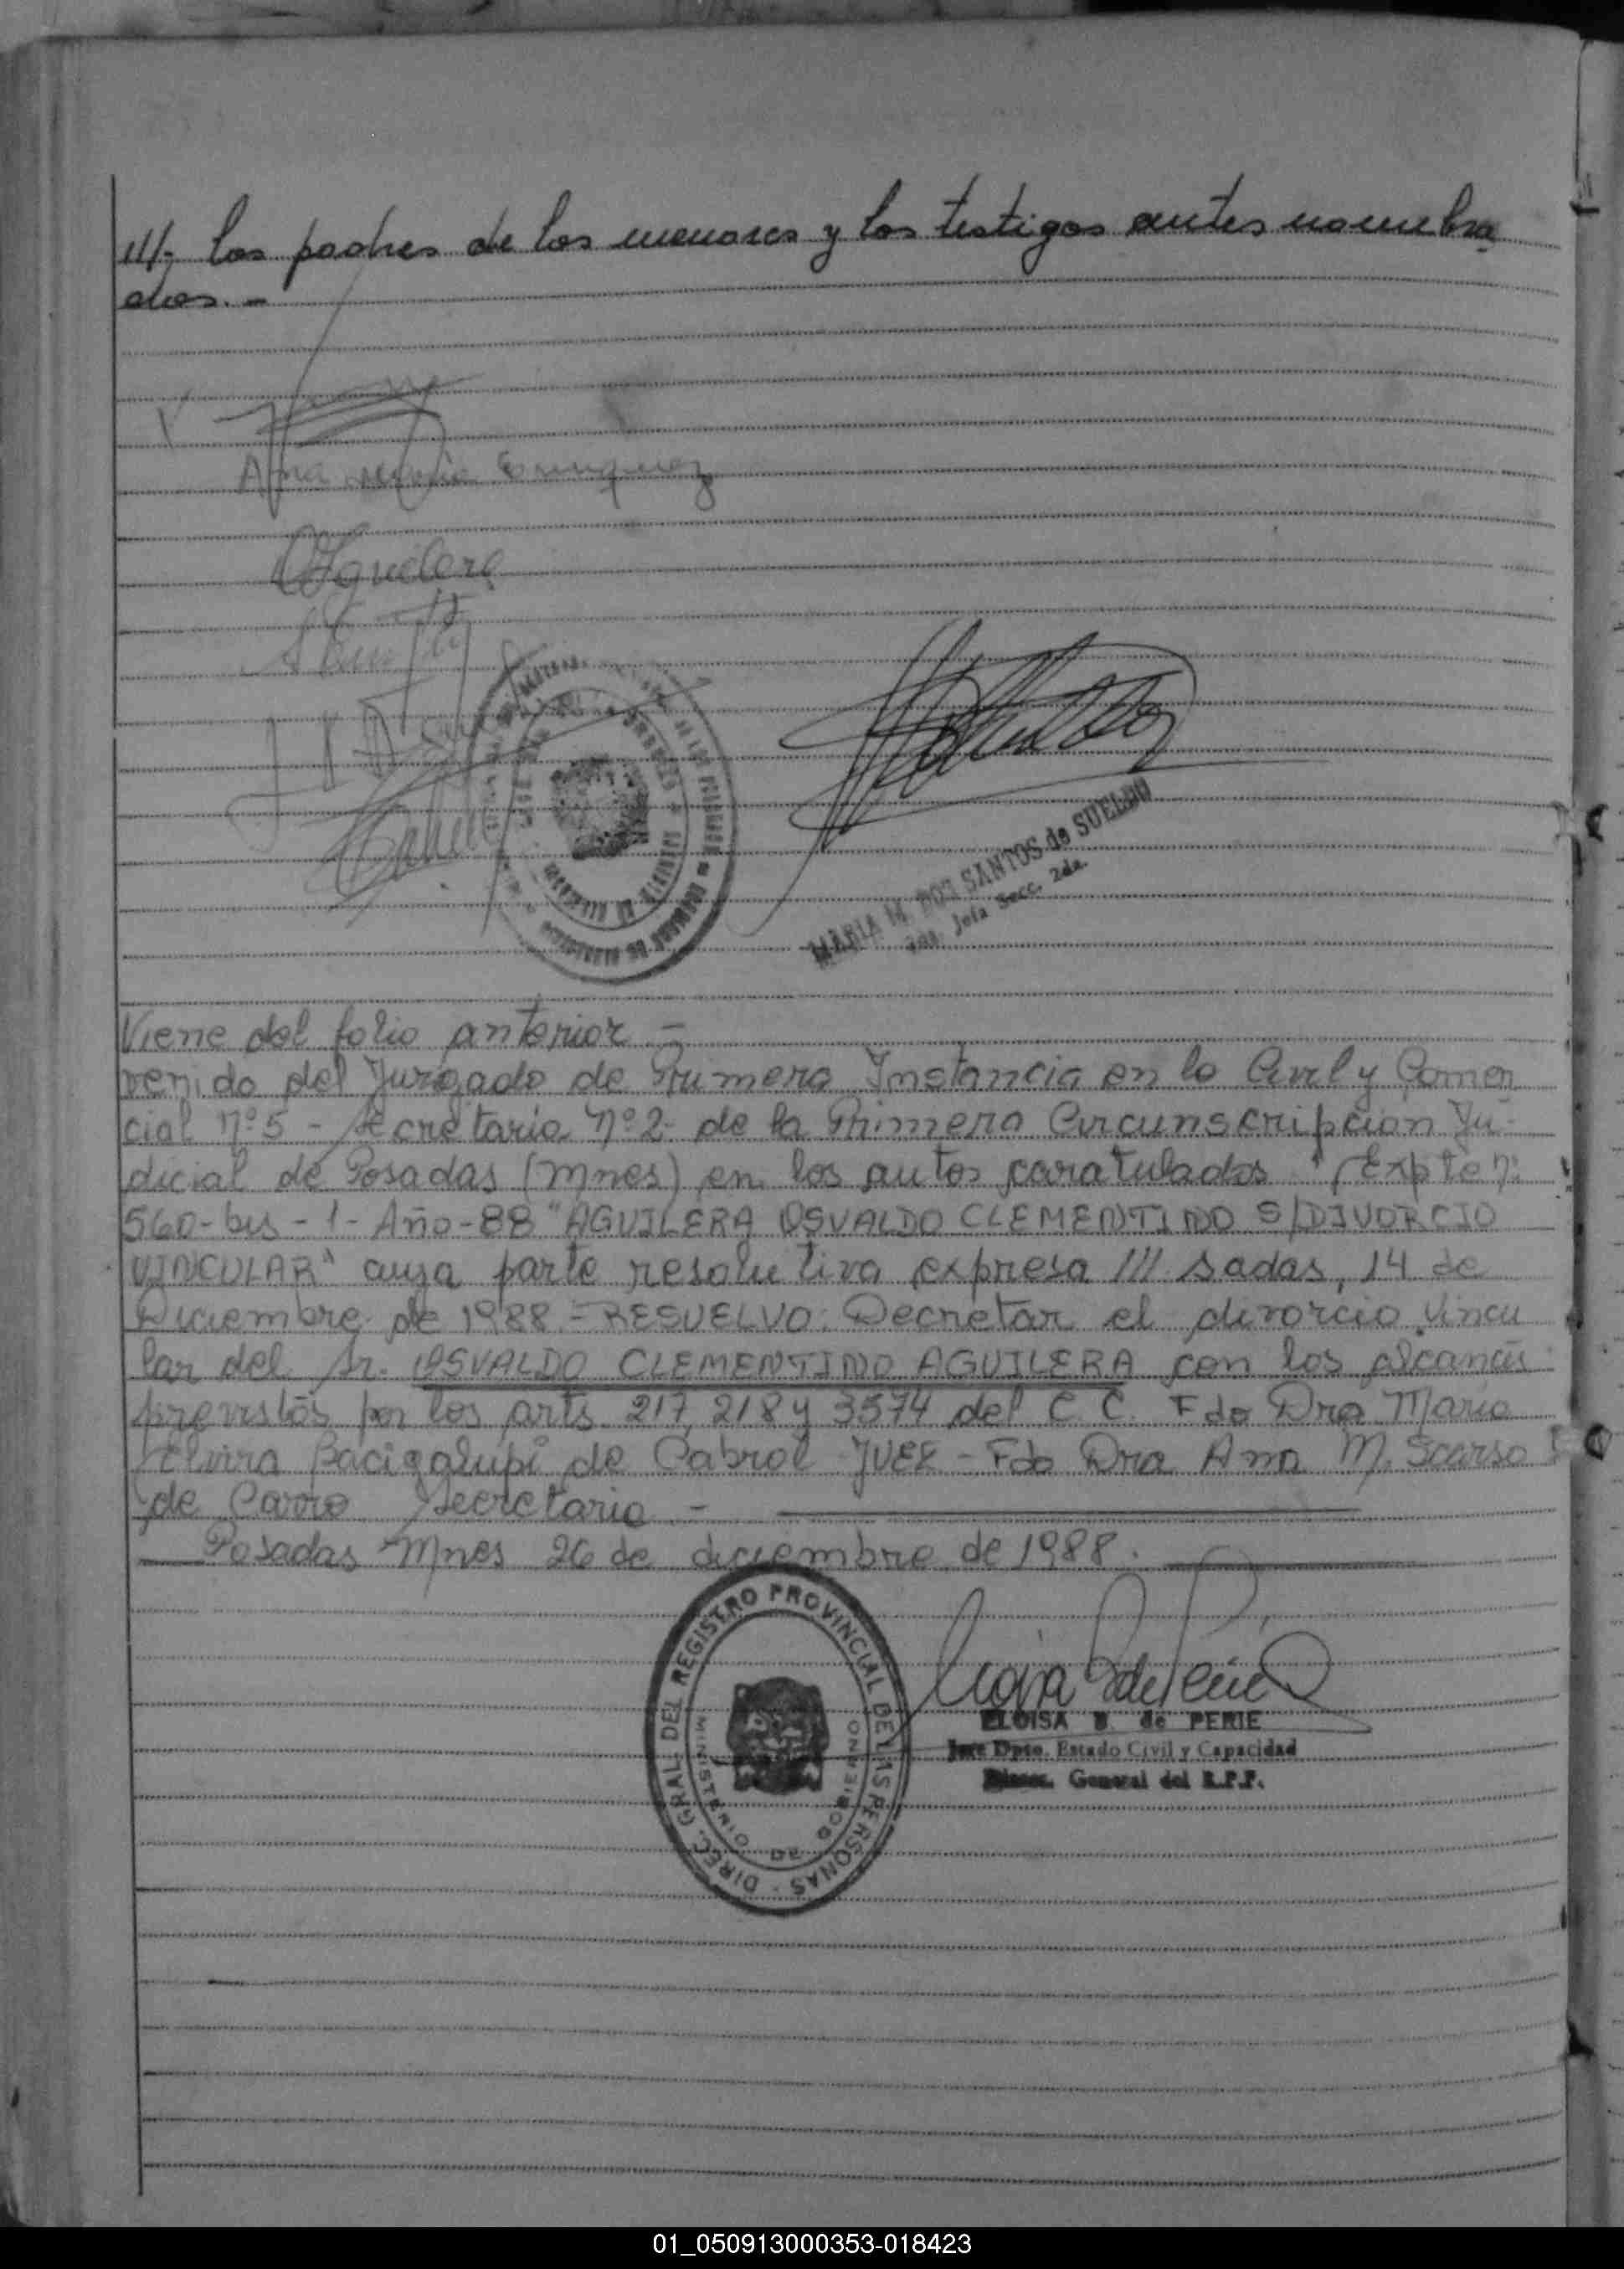 ///- los padres de los menores y los testigos antes nombra
dos.-
Ana María Enriquez
Aguilera
MARIA M. DOS SANTOS de SUELDO
Jefa Secc. 2da.
Viene del folio anterior -
venido del Juzgado de Primera Instancia en lo Civil y Comer
cial nº 5 - Secretaria nº 2 de la Primera Circunscripcion Ju-
dicial de Posadas (Mnes) en los autos caratulados "(Expte nº
560-bis-1-Año-88 "AGUILERA OSVALDO CLEMENTINO S/DIVORCIO
VINCULAR" cuya parte resolutiva expresa /// sadas, 14 de
Diciembre de 1988.- RESUELVO: Decretar el divorcio vincu
lar del Sr. OSVALDO CLEMENTINO AGUILERA con los alcances
previstos por los arts. 217, 218 y 3574 del C C. Fdo Dra Maria
Elvira Bacigalupi de Cabral JUEZ - Fdo Dra Ana M. Scarso
de Carro Secretaria -
Posadas Mnes 26 de diciembre de 1988.
DIREC. GRAL. DEL REGISTRO PROVINCIAL DE LAS PERSONAS -
MINISTERIO DE GOBIERNO
ELOISA B. de PERIE
Jefe Dpto. Estado Civil y Capacidad
Direc. General del R.P.P.
01_050913000353-018423